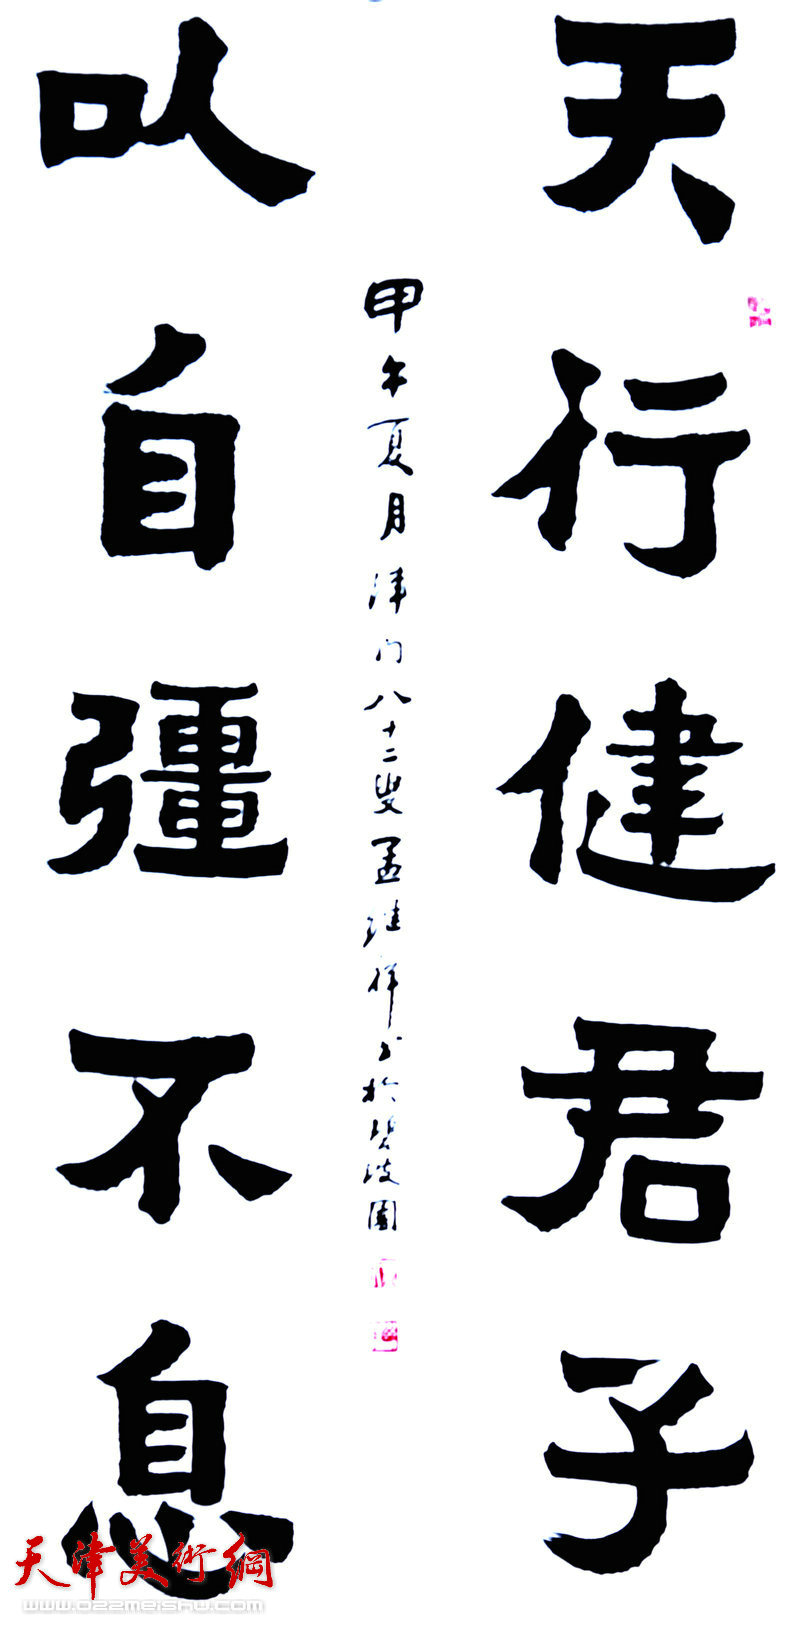 天行健君子
以自彊不息
甲午夏月津门八十二叟孟继祥书於碧波園
天津美術網
www.022meishu.com